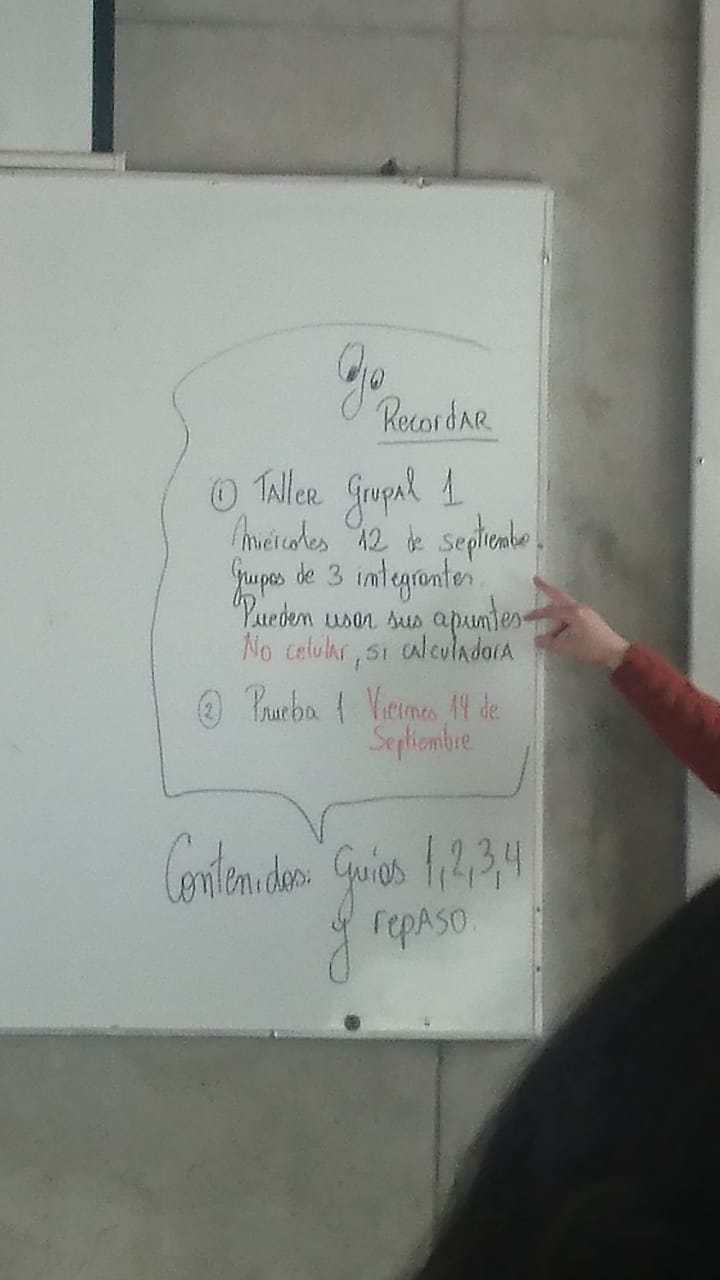 Ojo
RecordAR
① TAllER GrupAl 1
Miércoles 12 de septiembre.
Grupos de 3 integrantes.
Pueden usar sus apuntes
No celular, si cAlculAdorA
② Prueba 1 Viernes 14 de
Septiembre
Contenidos: Guías 1,2,3,4
y repASO.